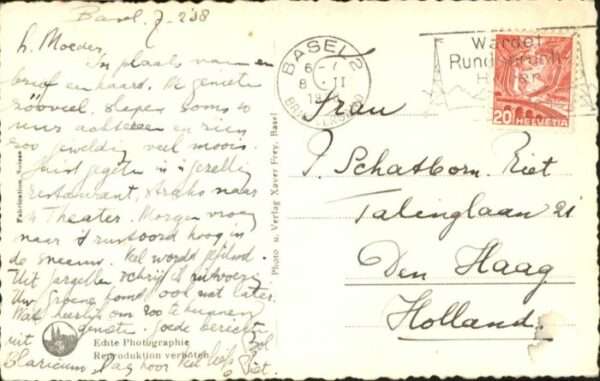 Basel. 7-2-38
L. Moeder,
In plaats van een
brief een kaart. We genieten
zóóveel. Slapen soms 10
uur achtereen en zien
zoo geweldig veel moois.
Juist gegeten in 'n gezellig
restaurant, straks naar
't Theater. Morgen vroeg
naar 't rustoord hoog in
de sneeuw. Veel wordt gefilmd.
Uit schrijf ik uitvoerig
Uw groene komt ook wat later.
Wat heerlijk om zoo te kunnen
genieten. Goede berichten
uit
Blaricum. Dag hoor veel liefs
Piet.
BASEL 2
BRIEFVERSAND
Werdet
Rundspruch-
Hörer
20 HELVETIA
Frau
P. Schatborn-Riet
Talinglaan 21
Den Haag
Holland.
Fabrication Suisse
Photo u. Verlag Xaver Frey, Basel
Echte Photographie
Reproduktion verboten